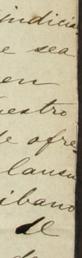 indicia
e sea
en
uestro
de ofre-
lausu
ibano
de